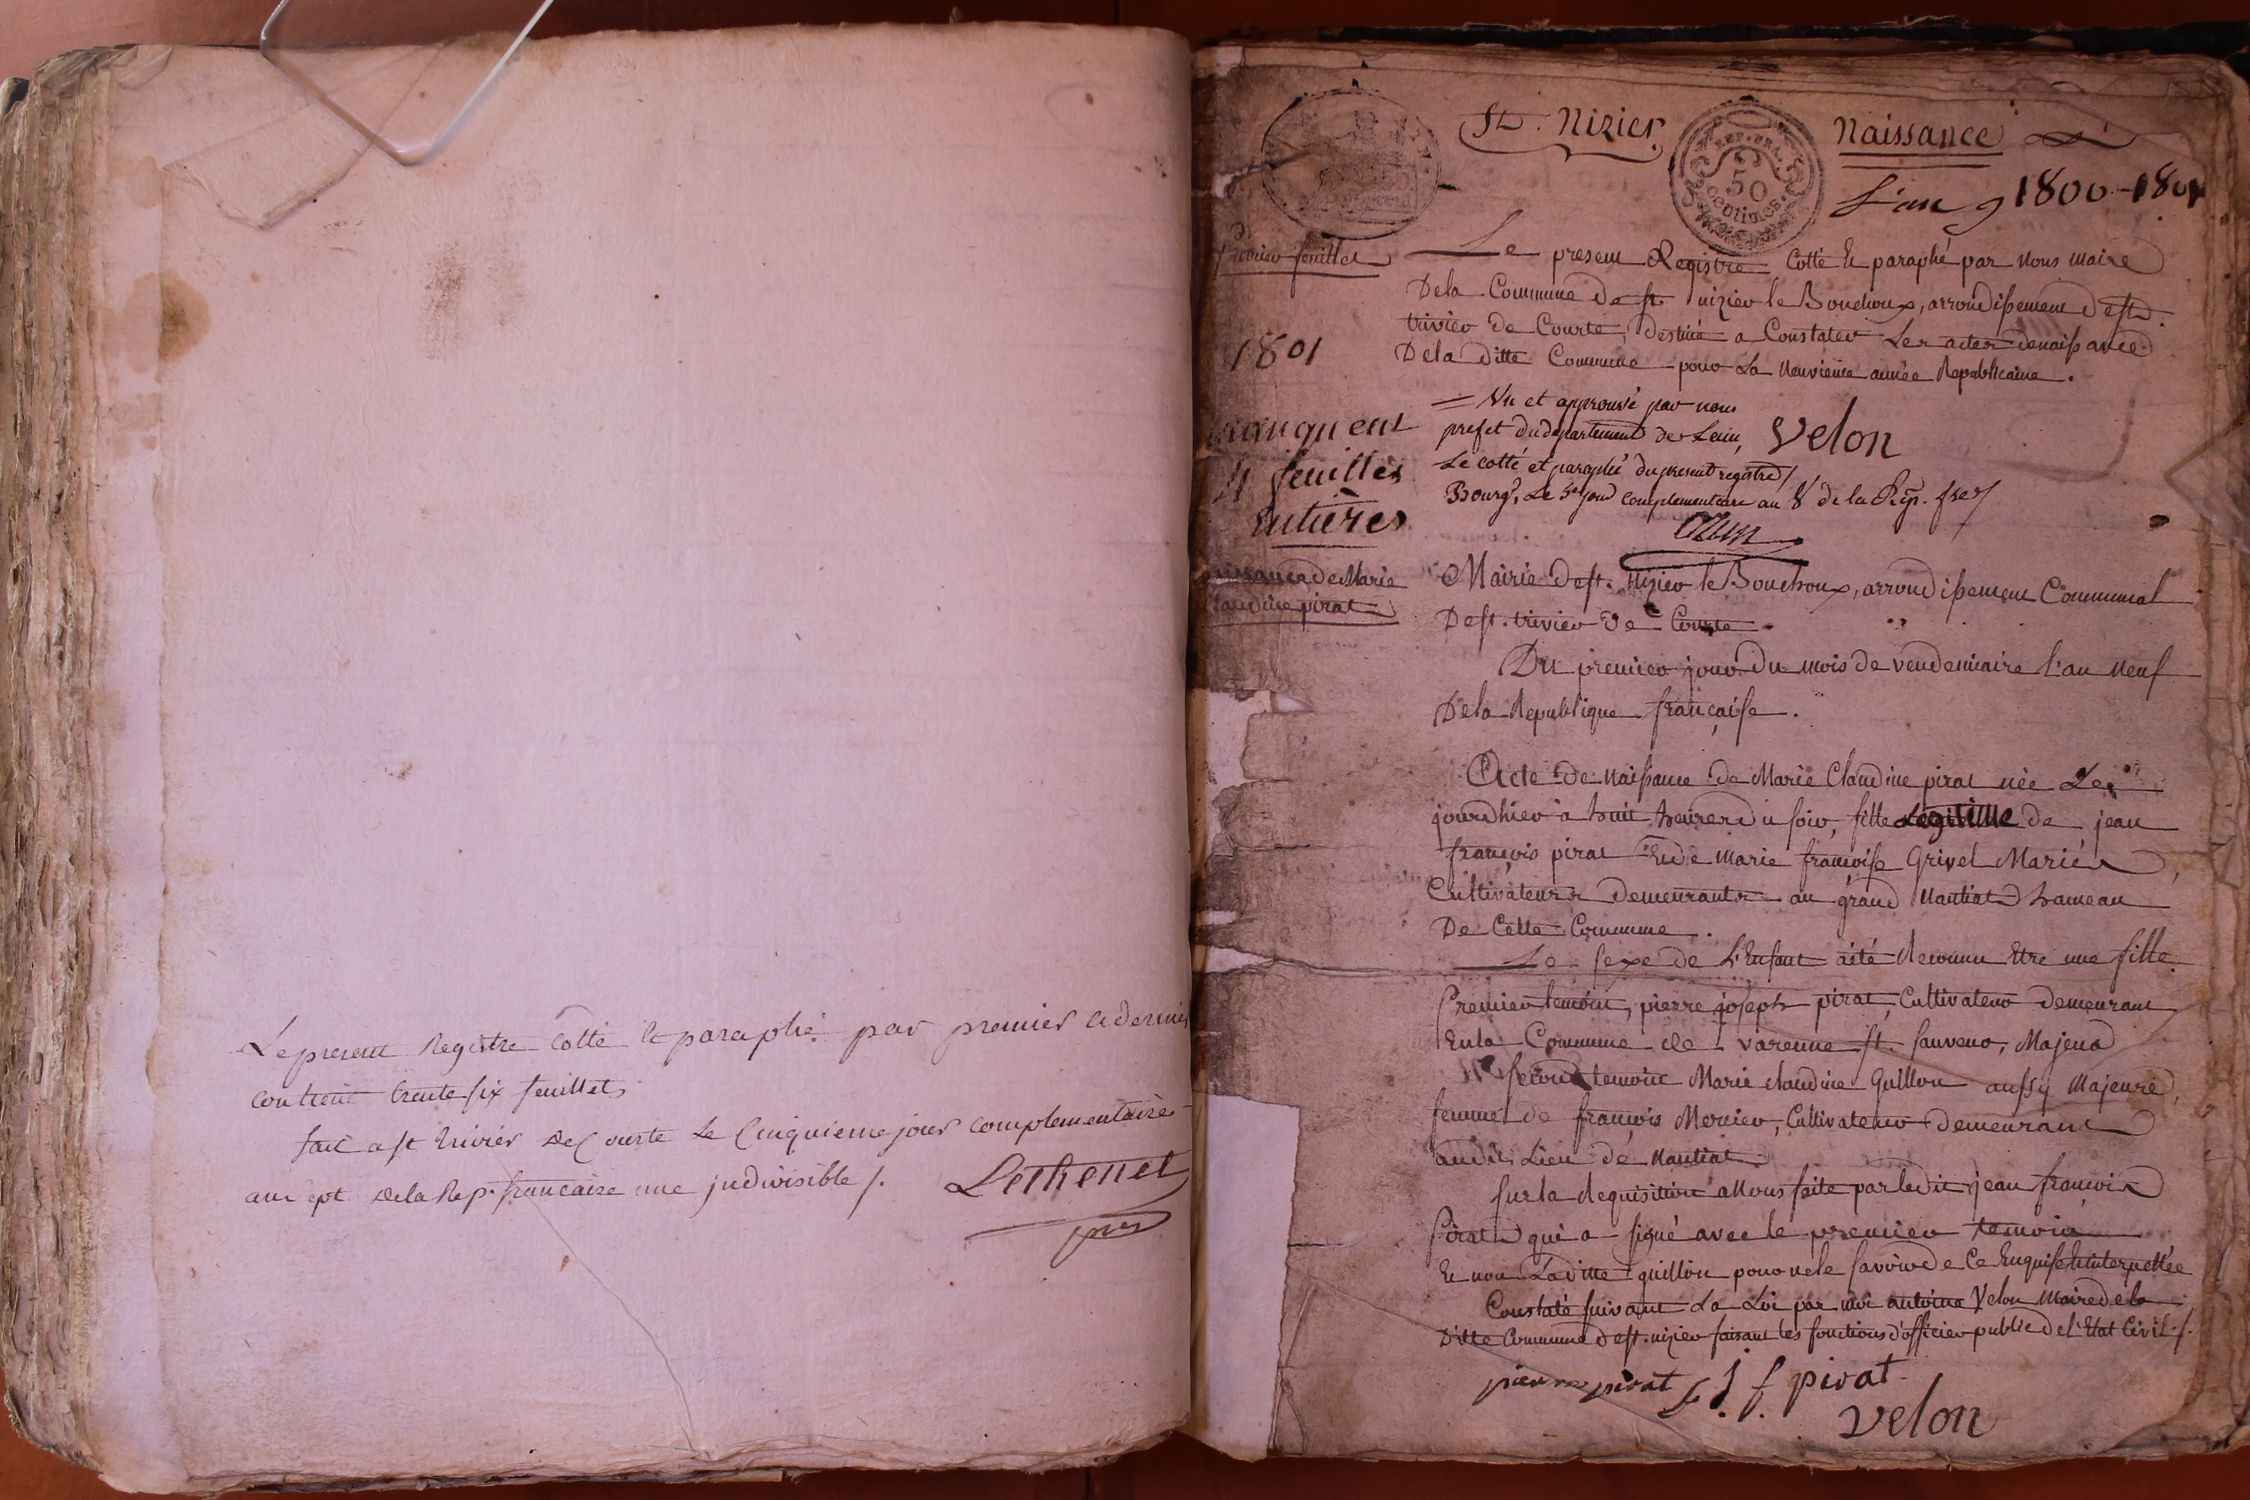 Le present Registre Cotté et paraphé par premier et dernier
contient trente six feuillets
fait a st trivier De Courte Le Cinquieme jour complementaire
an sept de la Rep. francaise une indivisible /.
Lethenet
St. Nizier
REP. FRA.
50
centimes
Naissance
L'an 9 1800 - 1801
Premier feuillet
Le present Registre Cotté et paraphé par Nous maire
De la Commune de st. nizier le Bouchoux, arrondissement De st.
trivier de Courte, destiné a Constater Les actes de naissance
De la ditte Commune pour La neuvième année Republicaine.
1801
manquent
4 feuilles
Entières
= Vu et approuvé par nous
prefet du departement de Lain,
Le cotté et paraphé du present registre /
Bourg, Le 5e jour complementaire an 8 de la Rep. fse /
Velon
naissance de Marie
Claudine pirat
Mairie de st. Nizier le Bouchoux, arrondissement Communal
De st. trivier de Courte.
Du premier jour du mois de vendemiaire l'an neuf
De la Republique française.
Acte de naissance de Marie Claudine pirat née Le
jourdhier à huit heures du soir, fille Legitime de jean
françois pirat Et de marie françoise Grivel Mariés,
Cultivateurs Demeurants au grand Nantiat hameau
De Cette Commune.
Le sexe de L'Enfant a été Reconnu Etre une fille
Premier temoin, pierre joseph pirat, Cultivateur demeurant
En la Commune de varenne st. sauveur, Majeur
second temoin Marie claudine Guillon aussy Majeure,
femme de françois Mercier, Cultivateur demeurant
audit Lieu de Nantiat.
sur la Requisition a Nous faite par ledit jean françois
Pirat qui a signé avec le premier temoin
Et non Laditte guillon pour ne le savoir de Ce Enquise Et interpellée
Constaté suivant La Loi par moi antoine Velon Maire de la
Ditte Commune de st. nizier faisant les fonctions d'officier public de l'Etat Civil /.
pierre pirat
j. f. pirat
velon